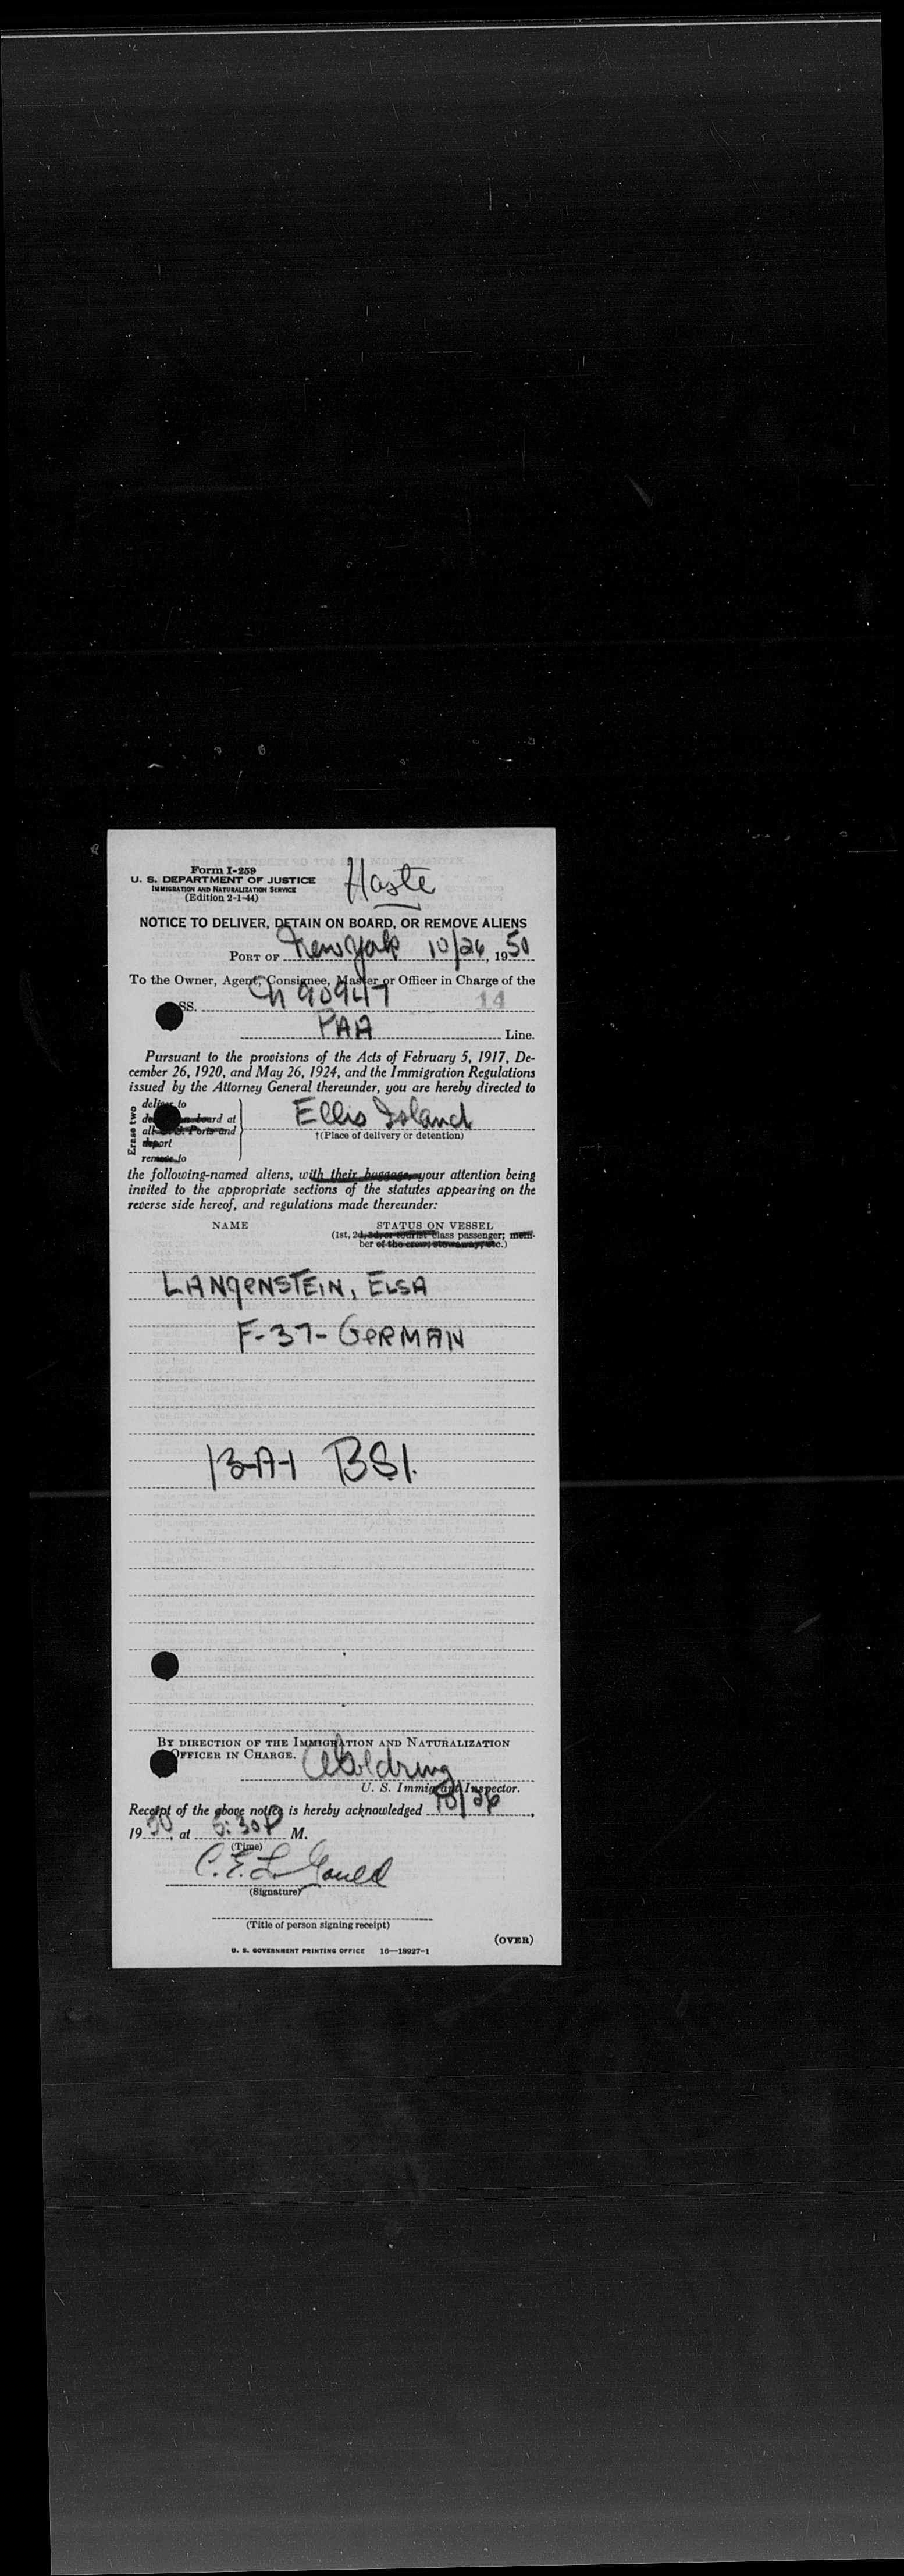 Form I-259
U. S. DEPARTMENT OF JUSTICE
IMMIGRATION AND NATURALIZATION SERVICE
(Edition 2-1-44)
Haste
NOTICE TO DELIVER, DETAIN ON BOARD, OR REMOVE ALIENS
PORT OF New York 10/26, 1950
To the Owner, Agent, Consignee, Master or Officer in Charge of the
SS. 90947 14
PAA Line.
Pursuant to the provisions of the Acts of February 5, 1917, De-
cember 26, 1920, and May 26, 1924, and the Immigration Regulations
issued by the Attorney General thereunder, you are hereby directed to
Erase two
deliver to
board at
Ports and
deport
remove to
Ellis Island
†(Place of delivery or detention)
the following-named aliens, with their baggage, your attention being
invited to the appropriate sections of the statutes appearing on the
reverse side hereof, and regulations made thereunder:
NAME STATUS ON VESSEL
(1st, 2d, 3d, or tourist class passenger; mem-
ber of the crew; stowaway; etc.)
LANGENSTEIN, ELSA
F-37- GERMAN
13-A-1 BSI.
BY DIRECTION OF THE IMMIGRATION AND NATURALIZATION
OFFICER IN CHARGE.
U. S. Immigrant Inspector.
Receipt of the above notice is hereby acknowledged 10/26,
1950, at 5:30 P M.
(Time)
C. E. L. Gould
(Signature)
(Title of person signing receipt)
(OVER)
U. S. GOVERNMENT PRINTING OFFICE 16—18927-1